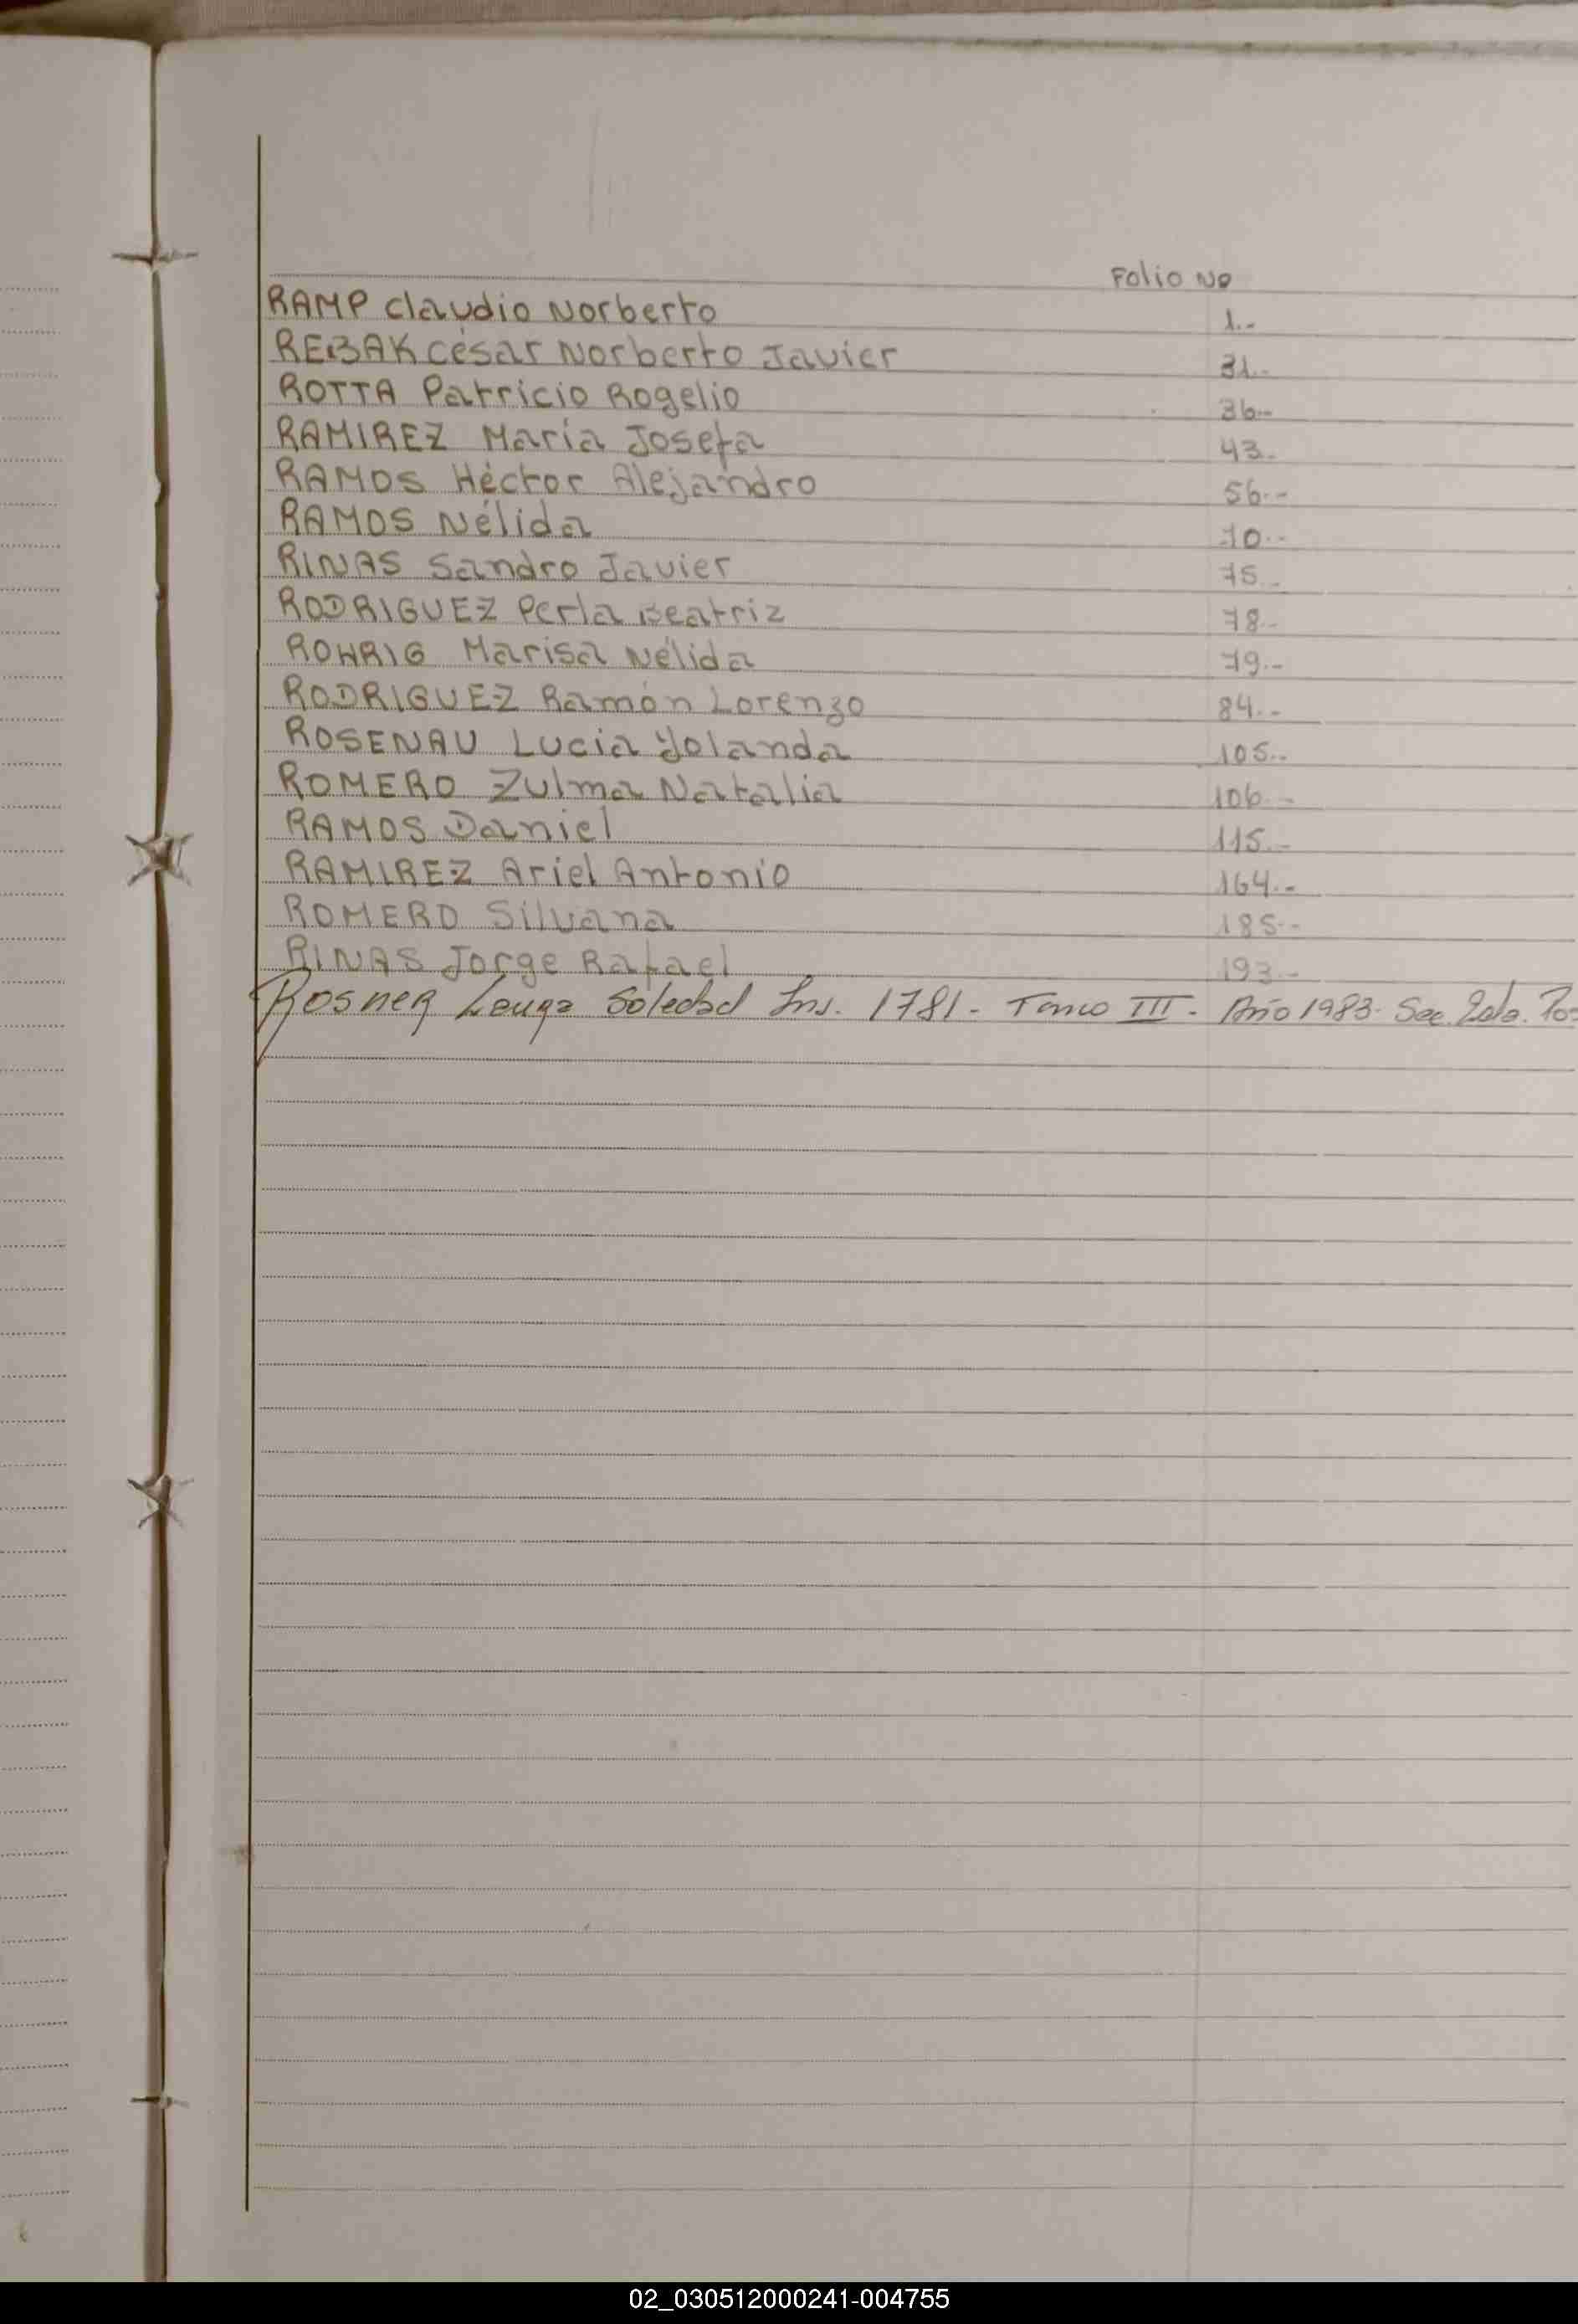 Folio No
RAMP Claudio Norberto 1.-
REBAK César Norberto Javier 31.-
ROTTA Patricio Rogelio 36.-
RAMIREZ María Josefa 43.
RAMOS Héctor Alejandro 56.-
RAMOS Nélida 70.-
RINAS Sandro Javier 75.-
RODRIGUEZ Perla Beatriz 78.-
ROHRIG Marisa Nélida 79.-
RODRIGUEZ Ramón Lorenzo 84.-
ROSENAU Lucia Yolanda 105.-
ROMERO Zulma Natalia 106.-
RAMOS Daniel 115.-
RAMIREZ Ariel Antonio 164.-
ROMERO Silvana 185.-
RINAS Jorge Rafael 193.-
Rosner Laura Soledad Ins. 1781- Tomo III - Año 1983. Sec. 
02_030512000241-004755